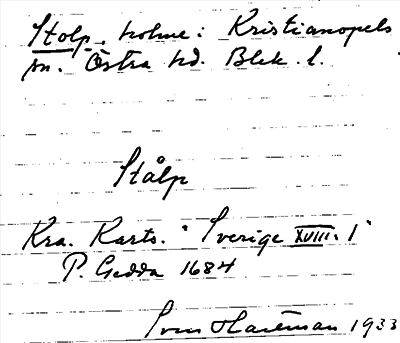 Stolp, holme i Kristianopels
sn. Östra hd. Blek. l.
Stålp
Kra. Karts. "Sverige XVIII. 1"
P. Gedda 1684
Sven 1933